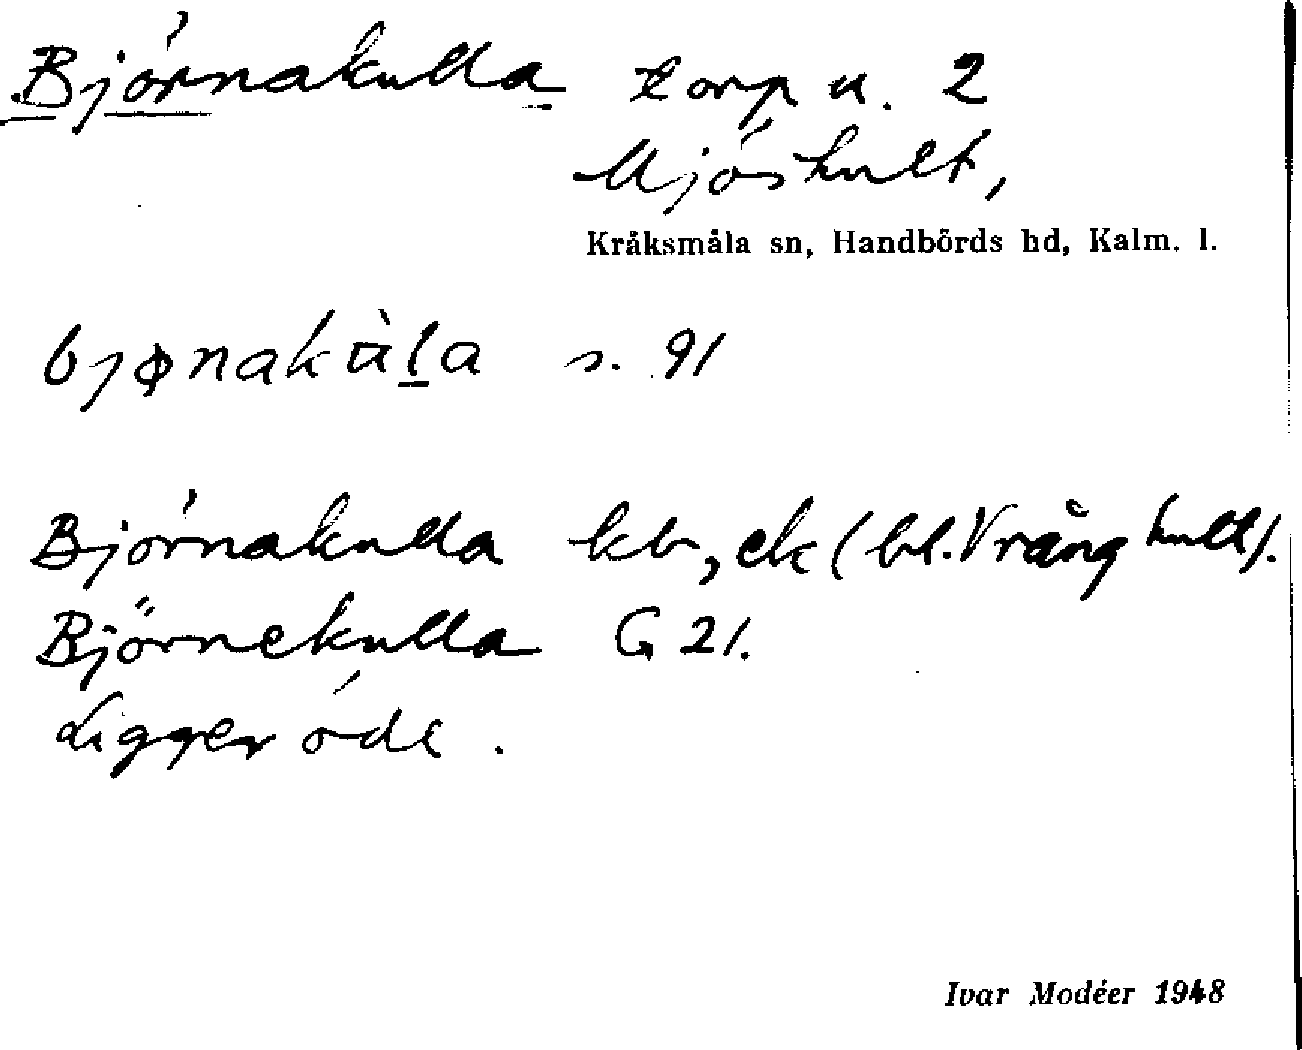 Björnakulla torp u. 2
Mjöshult,
Kråksmåla sn, Handbörds hd, Kalm. l.
bjɵnakùla s. 91
Björnakulla kb, ek (bl. Vrånghult).
Björnekulla G 21.
Ligger öde.
Ivar Modéer 1948